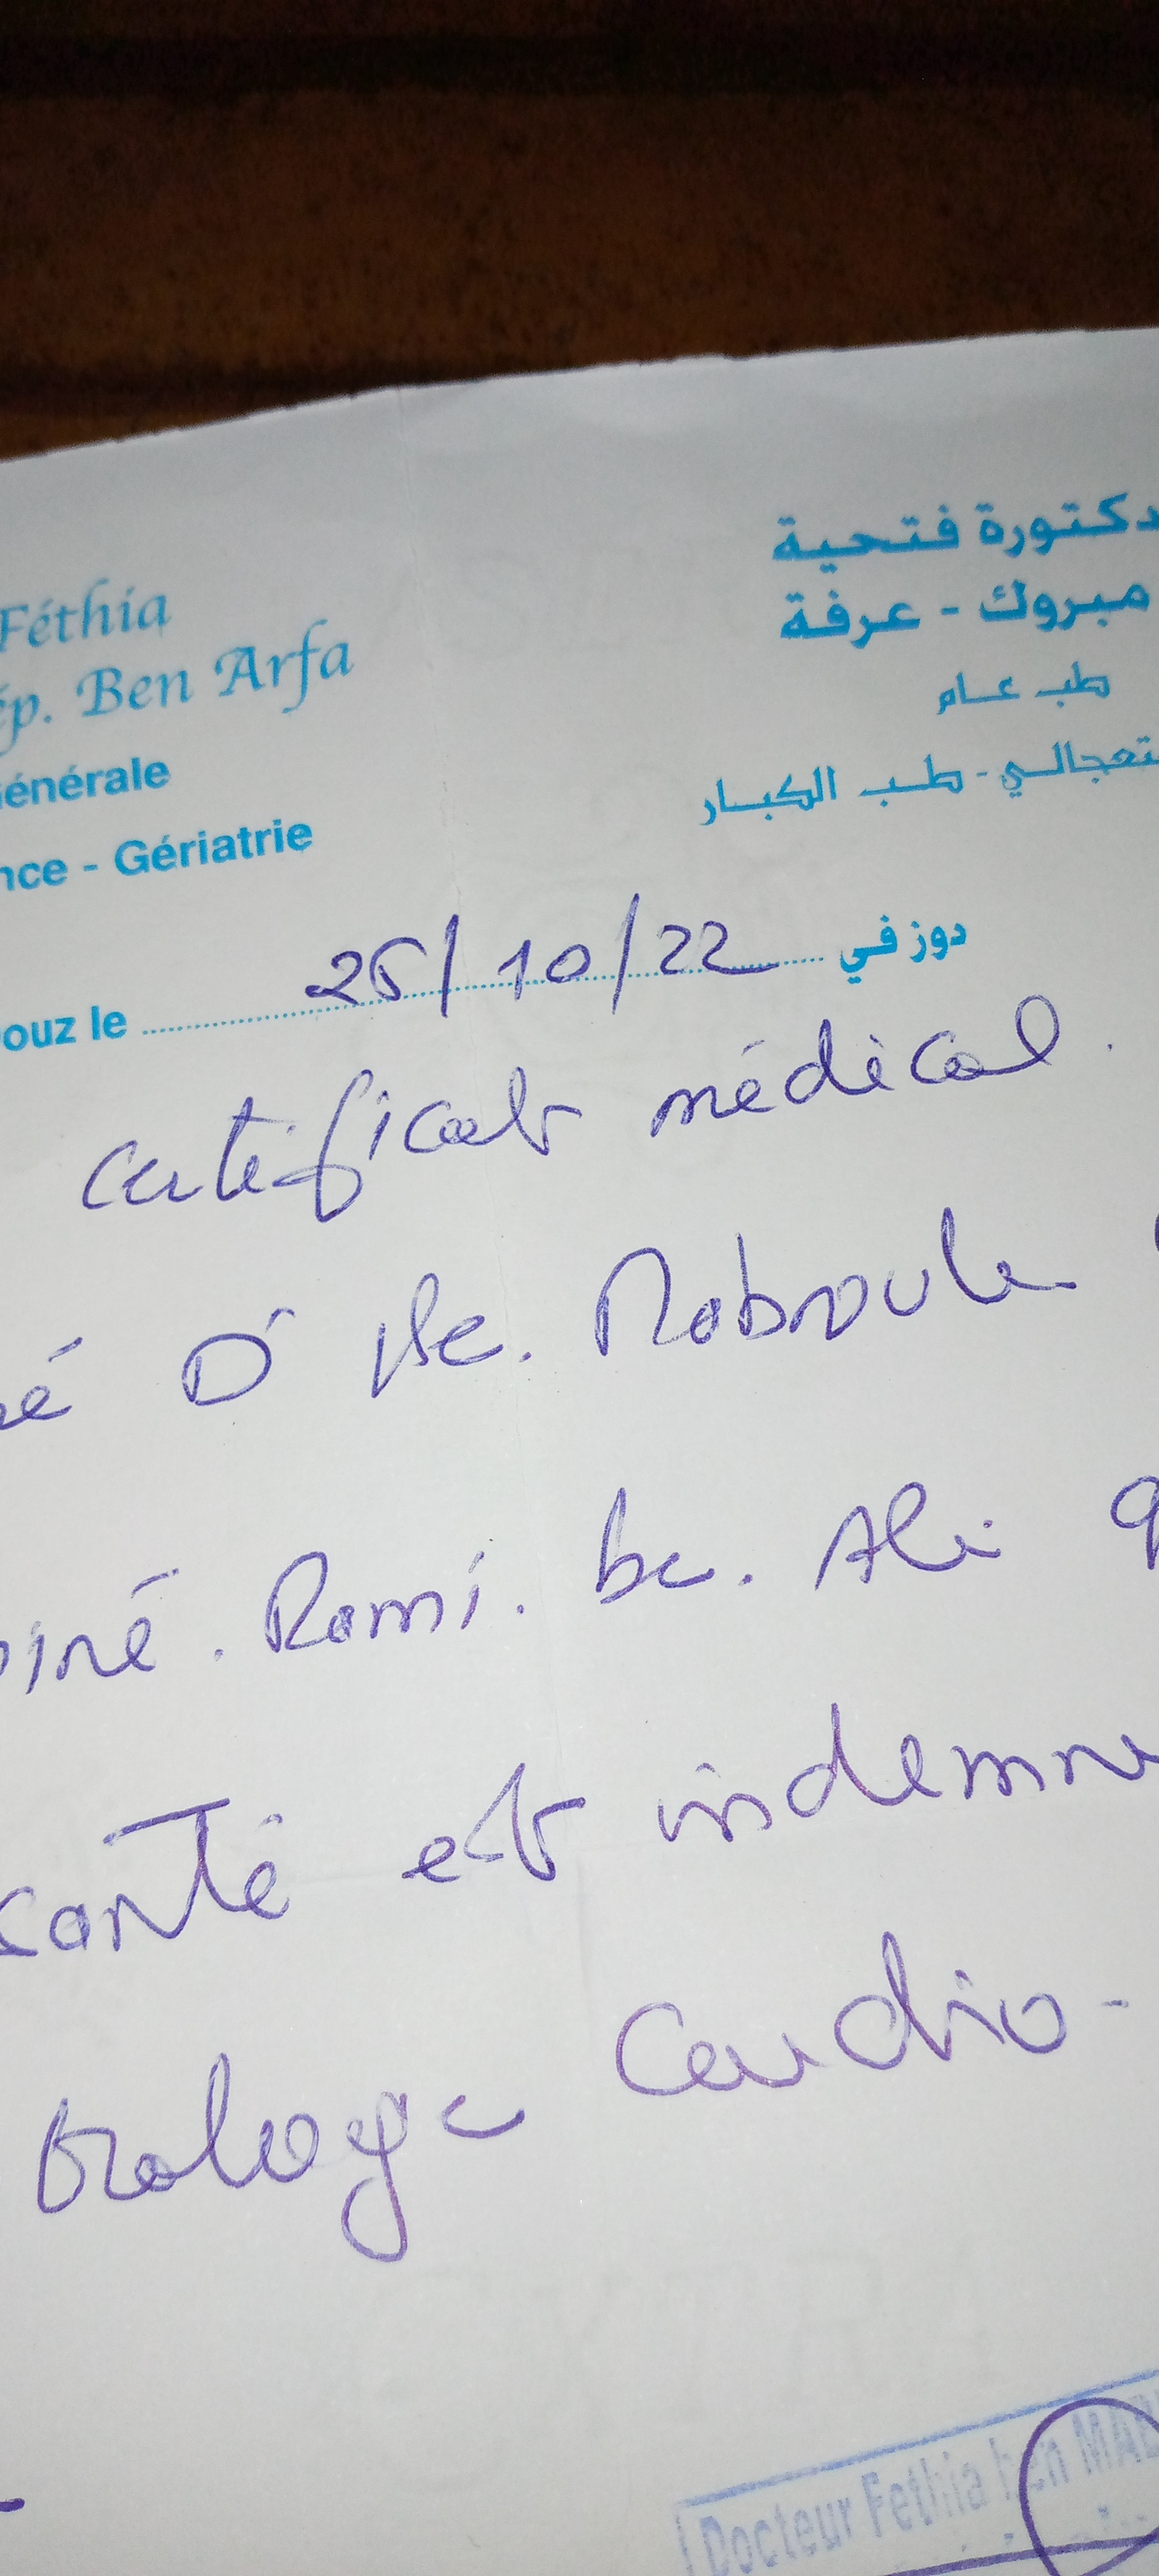 Féthia
ép. Ben Arfa
énérale
nce - Gériatrie
دكتورة فتحية
مبروك - عرفة
طب عام
تعجالي - طب الكبار
ouz le 25/10/22 دوز في
Certificat médical.
é Dr Be. Mabrouk
iné. Rami. be. Ali q
santé et indemne
trologe Cardio-
Docteur Fethia ben MAB